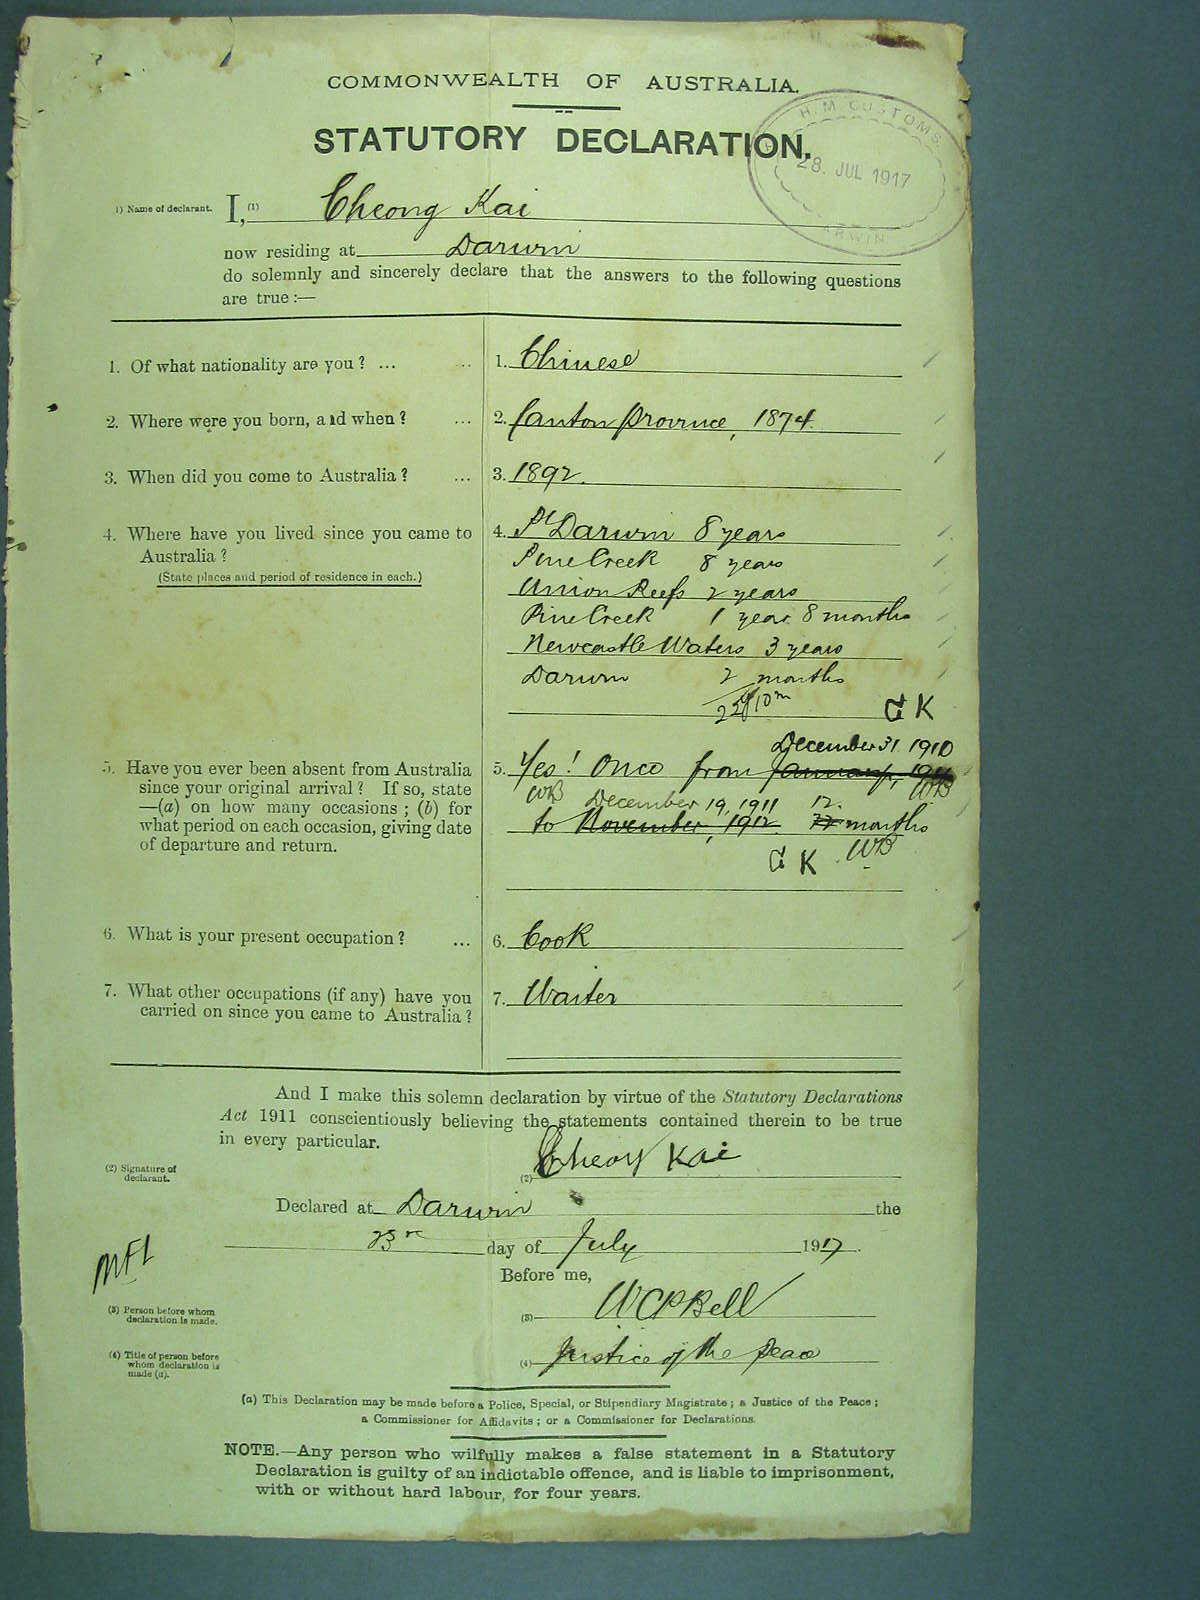 COMMONWEALTH OF AUSTRALIA.
STATUTORY DECLARATION.
H.M. CUSTOMS
28. JUL 1917
ARWIN
1) Name of declarant. I, (1) Cheong Kai
now residing at Darwin
do solemnly and sincerely declare that the answers to the following questions
are true :—
1. Of what nationality are you ? ... .. 1. Chinese
2. Where were you born, and when ? ... 2. Canton Province, 1874.
3. When did you come to Australia ? ... 3. 1892.
4. Where have you lived since you came to 4. Pt Darwin 8 years
Australia ? Pine Creek 8 years
(State places and period of residence in each.) Union Reefs 2 years
Pine Creek 1 year 8 months
Newcastle Waters 3 years
Darwin 2 months
22y 10m
C K
December 31 1910
5. Have you ever been absent from Australia 5. Yes! Once from January, 1911
since your original arrival ? If so, state WB December 19, 1911 12. WB
—(a) on how many occasions ; (b) for to November, 1912 22 months
what period on each occasion, giving date C K WB
of departure and return.
6. What is your present occupation ? ... 6. Cook
7. What other occupations (if any) have you 7. Waiter
carried on since you came to Australia ?
And I make this solemn declaration by virtue of the Statutory Declarations
Act 1911 conscientiously believing the statements contained therein to be true
in every particular.
(2) Signature of
declarant. (2) Cheong Kai
Declared at Darwin the
23rd day of July 1917.
Before me,
MFL
(3) Person before whom
declaration is made. (3) WCPBell
(4) Title of person before
whom declaration is
made (a). (4) Justice of the Peace
(a) This Declaration may be made before a Police, Special, or Stipendiary Magistrate ; a Justice of the Peace ;
a Commissioner for Affidavits ; or a Commissioner for Declarations.
NOTE.—Any person who wilfully makes a false statement in a Statutory
Declaration is guilty of an indictable offence, and is liable to imprisonment,
with or without hard labour, for four years.